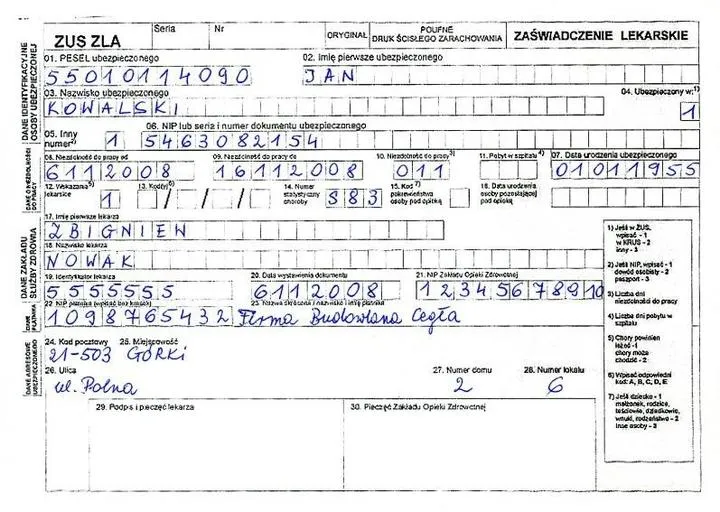 ZUS ZLA Seria Nr ORYGINAŁ POUFNE DRUK ŚCISŁEGO ZARACHOWANIA ZAŚWIADCZENIE LEKARSKIE
DANE IDENTYFIKACYJNE OSOBY UBEZPIECZONEJ
01. PESEL ubezpieczonego 02. Imię pierwsze ubezpieczonego
55010114090 JAN
03. Nazwisko ubezpieczonego 04. Ubezpieczony w:1)
KOWALSKI 1
05. Inny numer2) 1 06. NIP lub seria i numer dokumentu ubezpieczonego
5463082154
DANE O NIEZDOLNOŚCI DO PRACY
08. Niezdolność do pracy od 09. Niezdolność do pracy do 10. Niezdolność do pracy3) 11. Pobyt w szpitalu4) 07. Data urodzenia ubezpieczonego
6112008 16112008 011 01011955
12. Wskazania lekarskie5) 13. Kod(y)6) 14. Numer statystyczny choroby 15. Kod7) pokrewieństwa osoby pod opieką 16. Data urodzenia osoby pozostającej pod opieką
1 / / / S83
DANE ZAKŁADU SŁUŻBY ZDROWIA
17. Imię pierwsze lekarza
ZBIGNIEW
18. Nazwisko lekarza
NOWAK
19. Identyfikator lekarza 20. Data wystawienia dokumentu 21. NIP Zakładu Opieki Zdrowotnej
5555555 6112008 12345678910
DANE PŁATNIKA
22. NIP płatnika (wpisać bez kresek) 23. Nazwa skrócona / nazwisko i imię płatnika
1098765432 Firma Budowlana Cegła
DANE ADRESOWE UBEZPIECZONEGO
24. Kod pocztowy 25. Miejscowość
21-503 GÓRKI
26. Ulica 27. Numer domu 28. Numer lokalu
ul. Polna 2 6
29. Podpis i pieczęć lekarza 30. Pieczęć Zakładu Opieki Zdrowotnej
1) Jeśli w ZUS,
wpisać - 1
w KRUS - 2
inny - 3
2) Jeśli NIP, wpisać - 1
dowód osobisty - 2
paszport - 3
3) Liczba dni
niezdolności do pracy
4) Liczba dni pobytu w
szpitalu
5) Chory powinien
leżeć - 1
chory może
chodzić - 2
6) Wpisać odpowiedni
kod: A, B, C, D, E
7) Jeśli dziecko - 1
małżonek, rodzice,
teściowie, dziadkowie,
wnuki, rodzeństwo - 2
inne osoby - 3